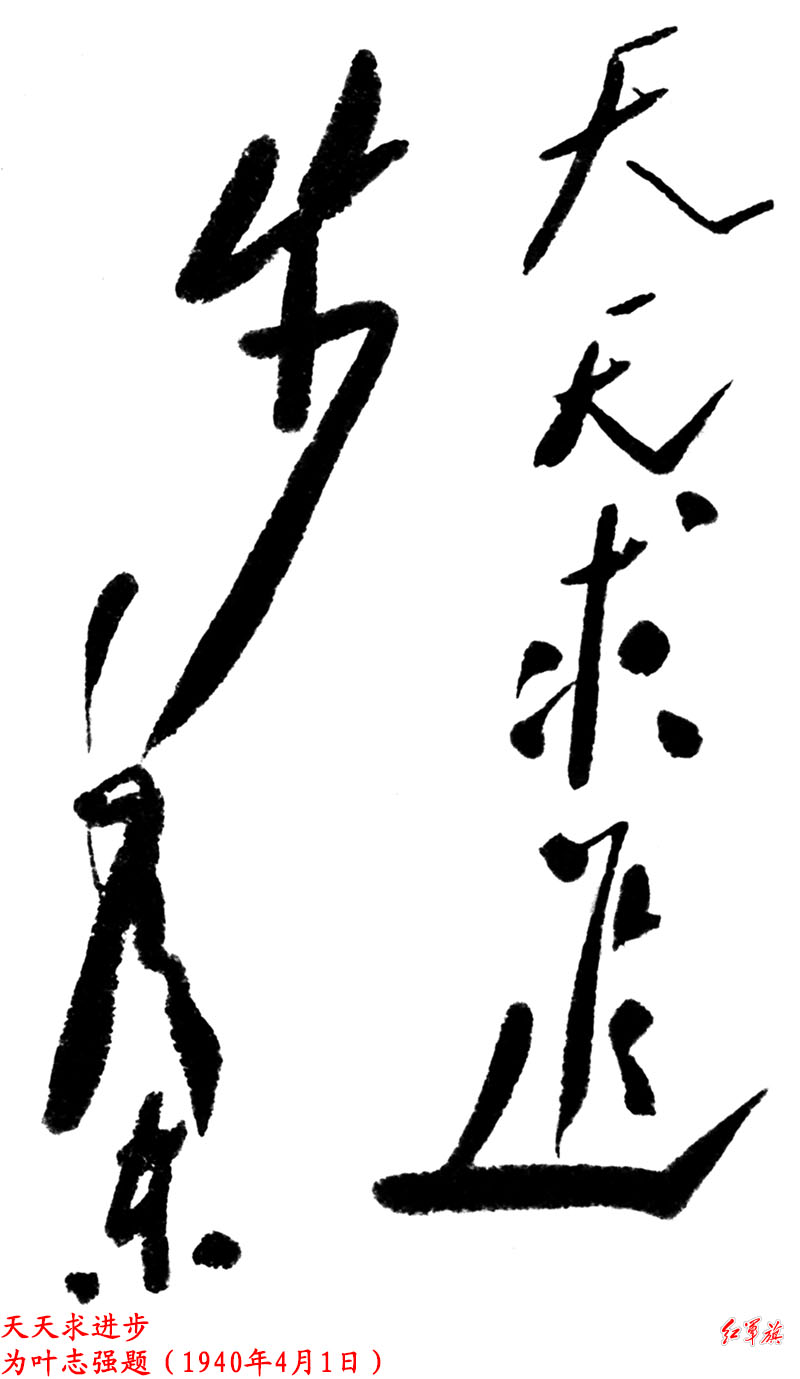 天天求進
步
毛泽东
天天求进步
为叶志强题（1940年4月1日）
红军旗